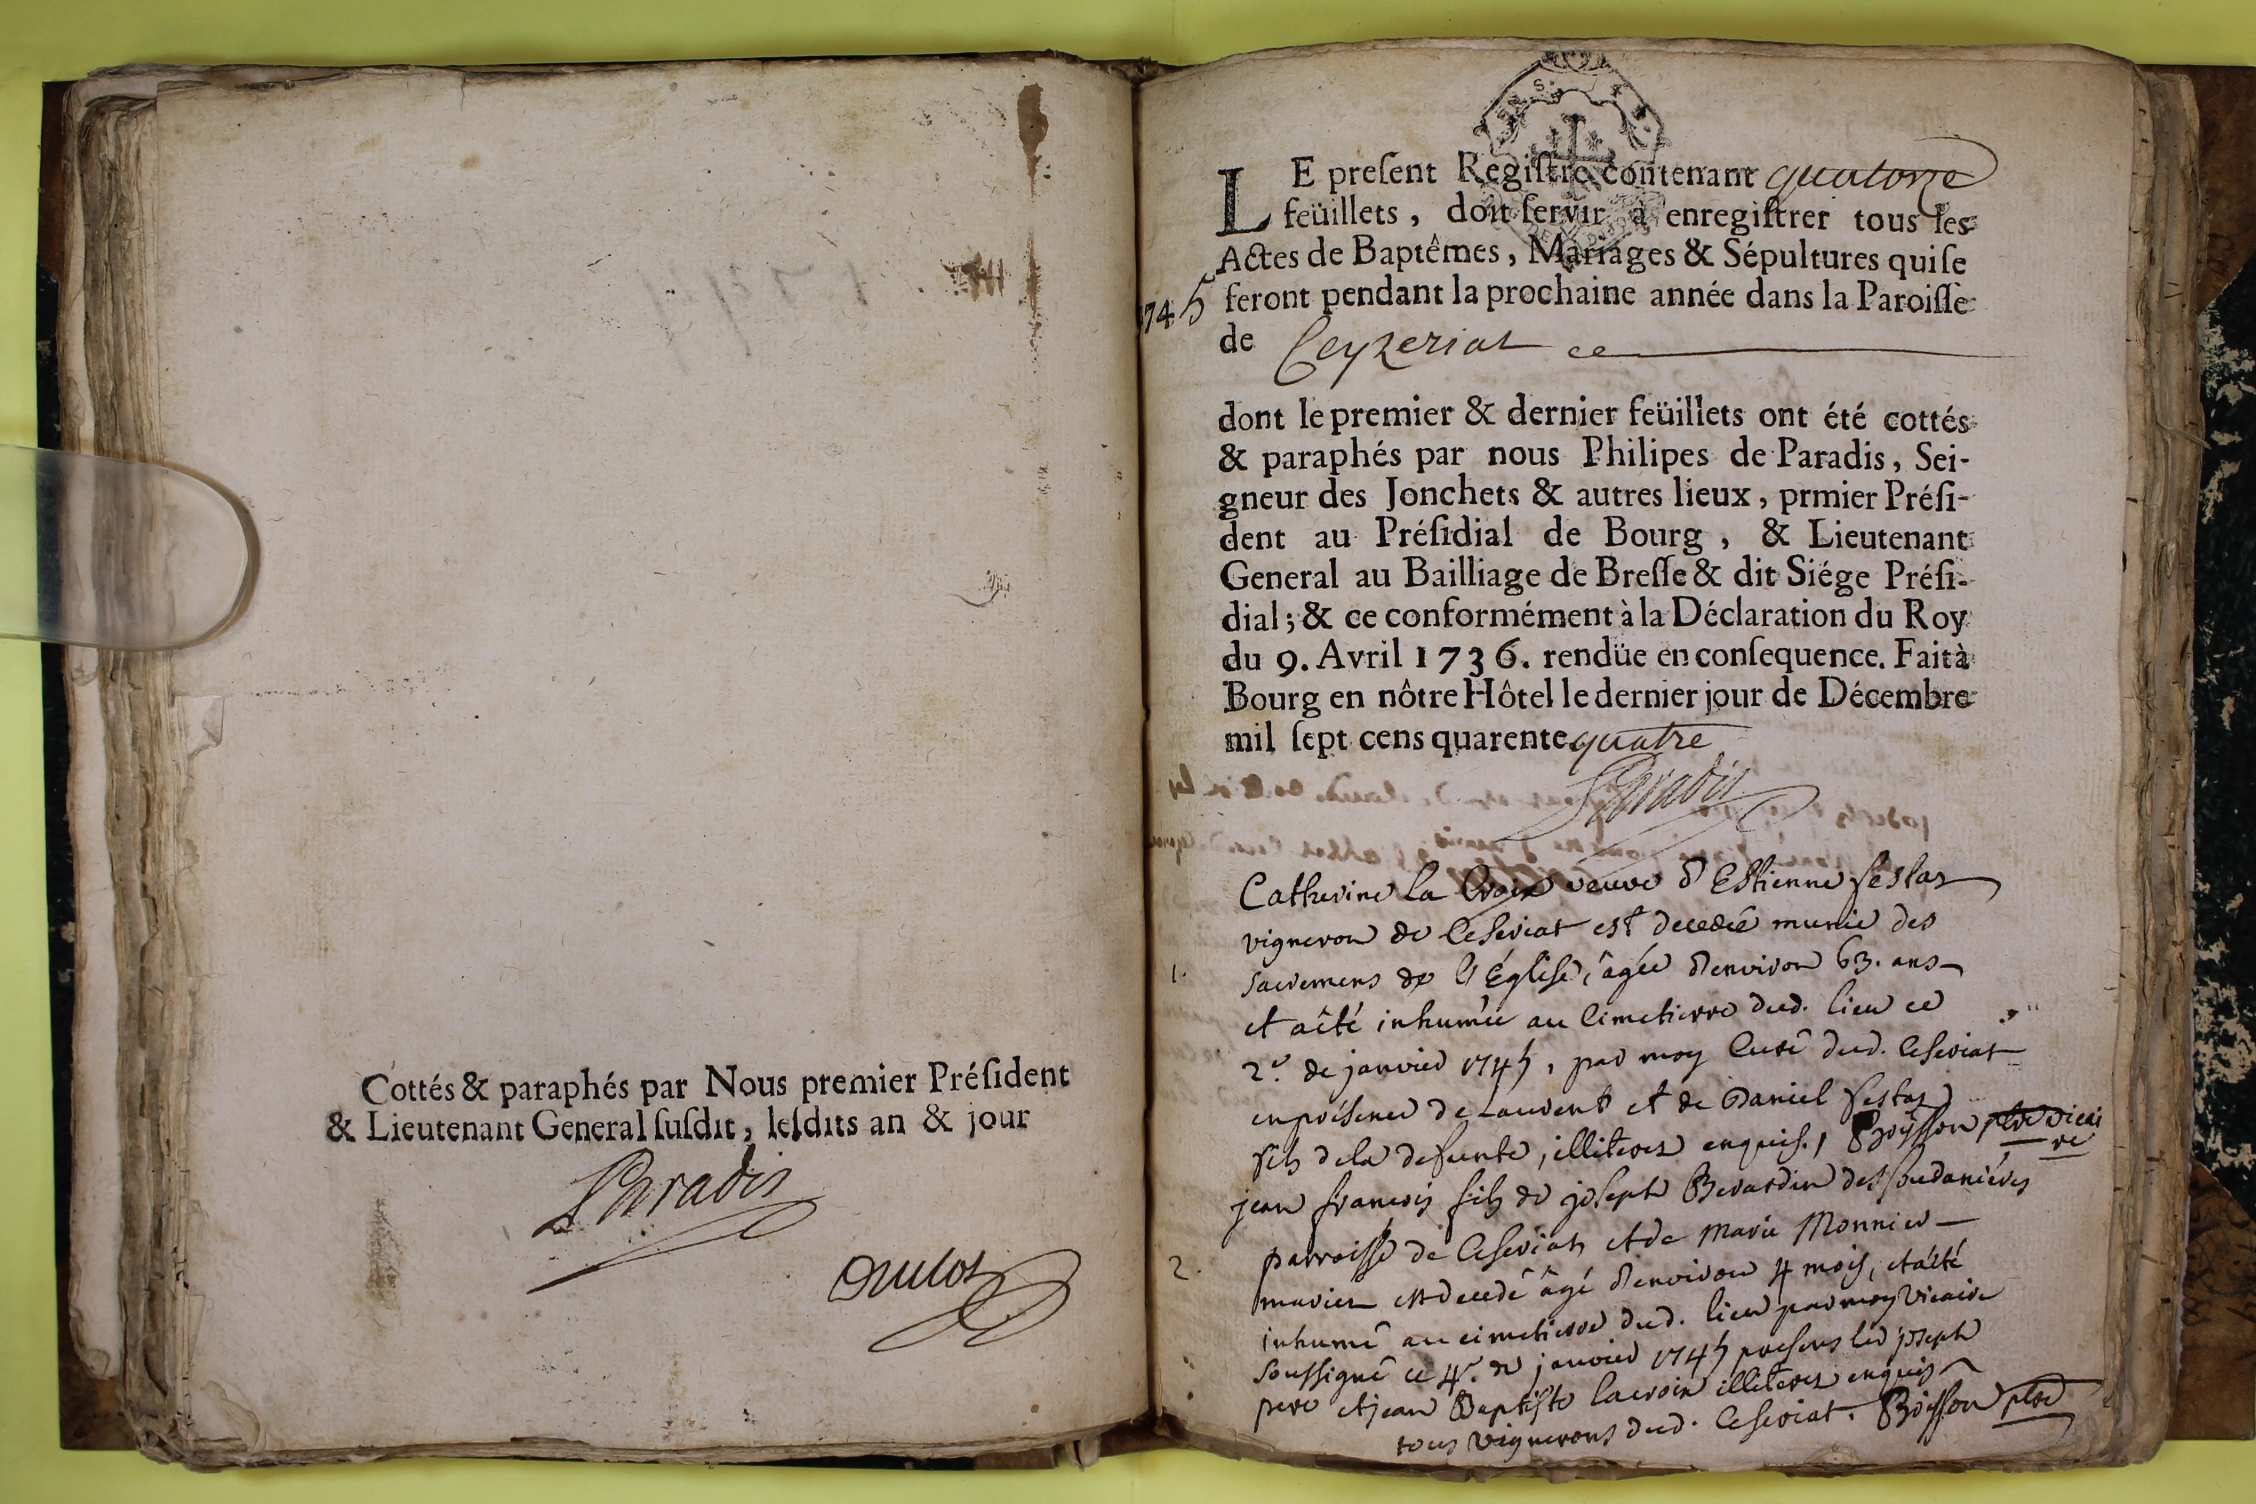 Cottés & paraphés par Nous premier Préſident
& Lieutenant General ſuſdit, leſdits an & jour
Paradis
LE preſent Regiſtre contenant quatorze
feüillets, doit ſervir à enregiſtrer tous les
Actes de Baptêmes, Mariages & Sépultures qui ſe
1745
feront pendant la prochaine année dans la Paroiſſe
de Ceyzeriat ce
dont le premier & dernier feüillets ont été cottés
& paraphés par nous Philipes de Paradis, Sei-
gneur des Jonchets & autres lieux, prmier Préſi-
dent au Préſidial de Bourg, & Lieutenant
General au Bailliage de Breſſe & dit Siége Préſi-
dial; & ce conformément à la Déclaration du Roy
du 9. Avril 1736. rendüe en conſequence. Fait à
Bourg en nôtre Hôtel le dernier jour de Décembre
mil ſept cens quarente quatre
Paradis
Catherine la Croix veuve d'Estienne festas
vigneron de Ceseriat est decedée munie des
1.
sacremens de l'Église, âgée d'environ 63. ans
et a été inhumée au Cimetierre dud. lieu ce
2e. de janvier 1745, par moy Curé dud. Ceseriat
en présence de Laurent et de Daniel festas
fils de la defunte, illiteres enquis. Boysson ptre vicai
re
jean francois fils de joseph Berardin des soudanières
parroisse de Ceseriat et de Marie Monnier
2.
mariez est decedé âgé d'environ 4 mois, et a été
inhumé au cimetierre dud. lieu par moy Vicaire
soussigné ce 4e. de janvier 1745 presens led joseph
pere et jean Baptiste Lacroix illiteres enquis
tous vignerons dud. Ceseriat. Boysson ptre